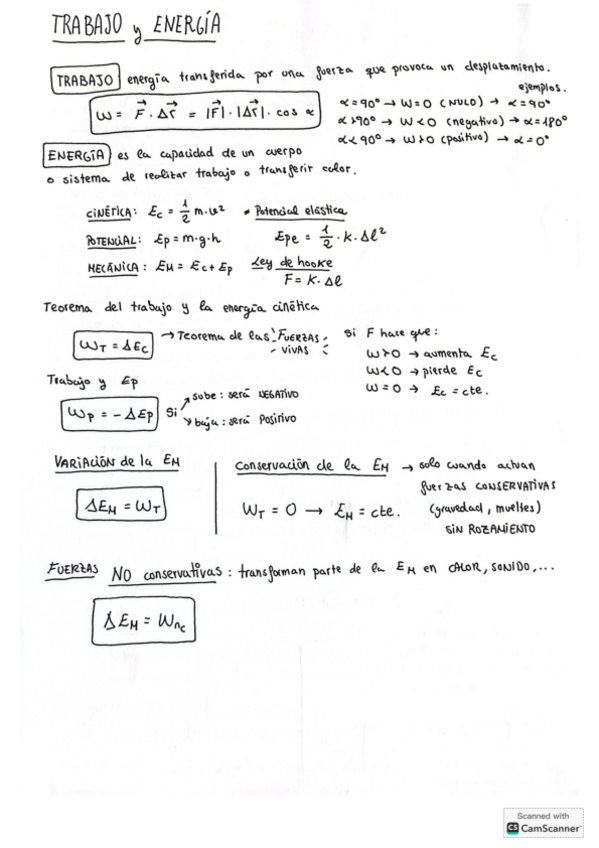 TRABAJO y ENERGÍA
TRABAJO energía transferida por una fuerza que provoca un desplazamiento.
ejemplos.
W = F⃗ · Δr⃗ = |F⃗| · |Δr⃗| · cos α
α = 90° → W = 0 (NULO) → α = 90°
α > 90° → W < 0 (negativo) → α = 180°
α < 90° → W > 0 (positivo) → α = 0°
ENERGÍA es la capacidad de un cuerpo
o sistema de realizar trabajo o transferir calor.
CINÉTICA: Ec = 1/2 m · v² * Potencial elástica
POTENCIAL: Ep = m · g · h Epe = 1/2 · K · Δl²
MECÁNICA: EM = Ec + Ep Ley de hooke
F = K · Δl
Teorema del trabajo y la energía cinética
WT = ΔEc → Teorema de las FUERZAS VIVAS
Si F hace que:
W > 0 → aumenta Ec
W < 0 → pierde Ec
W = 0 → Ec = cte.
Trabajo y Ep
Wp = - ΔEp Si
sube: será NEGATIVO
baja: será POSITIVO
VARIACIÓN de la EM
ΔEM = WT
Conservación de la EM → solo cuando actuan
fuerzas CONSERVATIVAS
WT = 0 → EM = cte. (gravedad, muelles)
SIN ROZAMIENTO
FUERZAS NO conservativas: transforman parte de la EM en CALOR, SONIDO, ...
ΔEM = Wnc
Scanned with
CS CamScanner